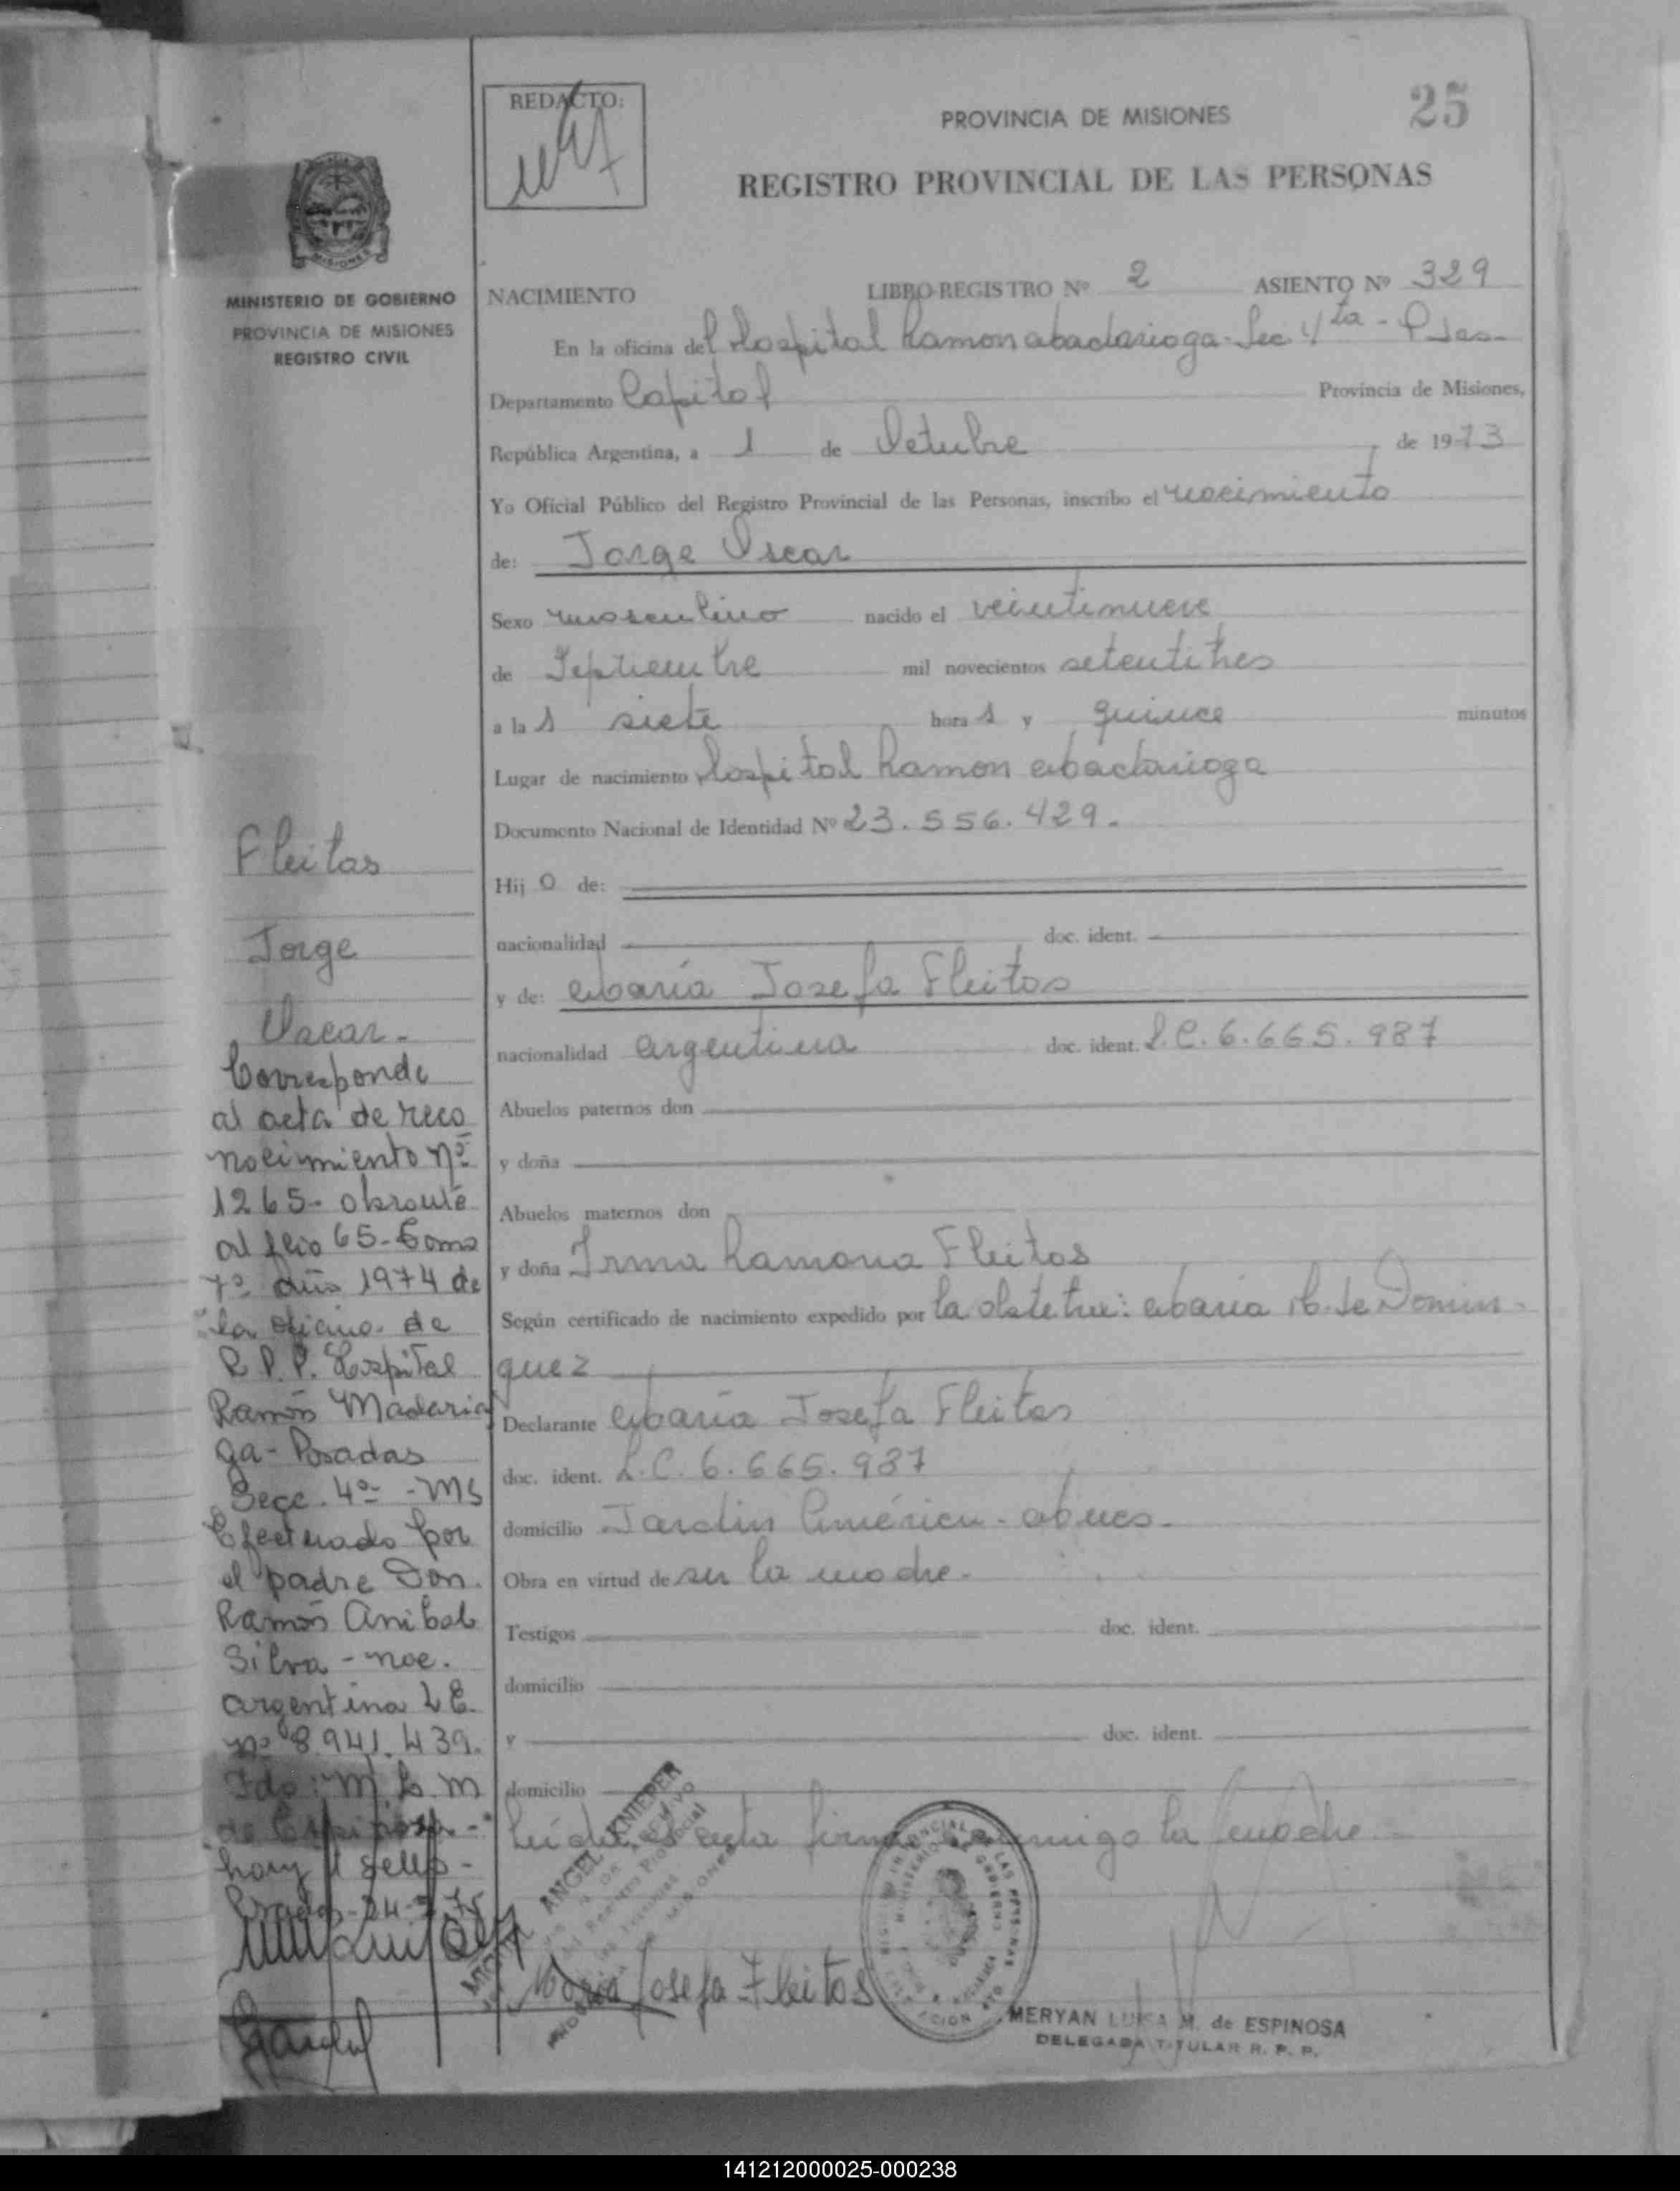 REDACTO:
PROVINCIA DE MISIONES
25
REGISTRO PROVINCIAL DE LAS PERSONAS
MISIONES
MINISTERIO DE GOBIERNO
PROVINCIA DE MISIONES
REGISTRO CIVIL
NACIMIENTO LIBRO-REGISTRO Nº 2 ASIENTO Nº 329
En la oficina del Hospital Ramon Madariaga - Sec 4ta - Pdas-
Departamento Capital Provincia de Misiones,
República Argentina, a 1 de Octubre de 1973
Yo Oficial Público del Registro Provincial de las Personas, inscribo el nacimiento
de: Jorge Oscar
Sexo masculino nacido el veintinueve
de Septiembre mil novecientos setentitres
a las siete horas y quince minutos
Lugar de nacimiento Hospital Ramon Madariaga
Documento Nacional de Identidad Nº 23.556.429.
Hijo de:
nacionalidad doc. ident.
y de: María Josefa Fleitas
nacionalidad argentina doc. ident. L.C. 6.665.987
Abuelos paternos don
y doña
Abuelos maternos don
y doña Irma Ramona Fleitas
Según certificado de nacimiento expedido por la obstetra: María M. de Domin-
guez
Declarante María Josefa Fleitas
doc. ident. L.C. 6.665.987
domicilio Jardin América - Mnes-
Obra en virtud de ser la madre.
Testigos doc. ident.
domicilio
y doc. ident.
domicilio
Leida el acta firma conmigo la madre.-
Fleitas
Jorge
Oscar-
Corresponde
al acta de reco
nocimiento nº
1265- obrante
al flio 65- Tomo
7º año 1974 de
la oficina de
R.P.P. Hospital
Ramón Madaria
ga- Posadas
Secc. 4ª - Ms
Efectuado por
el padre Don
Ramón Anibal
Silva - nac.
argentina L E.
nº 8.941.439.
Fdo: M. L. M
de Espinosa -
hay 1 sello-
Posadas-24-
María Josefa Fleitas
MIGUEL ANGEL KNIEPER
MERYAN LUISA M. de ESPINOSA
DELEGADA TITULAR R. P. P.
141212000025-000238